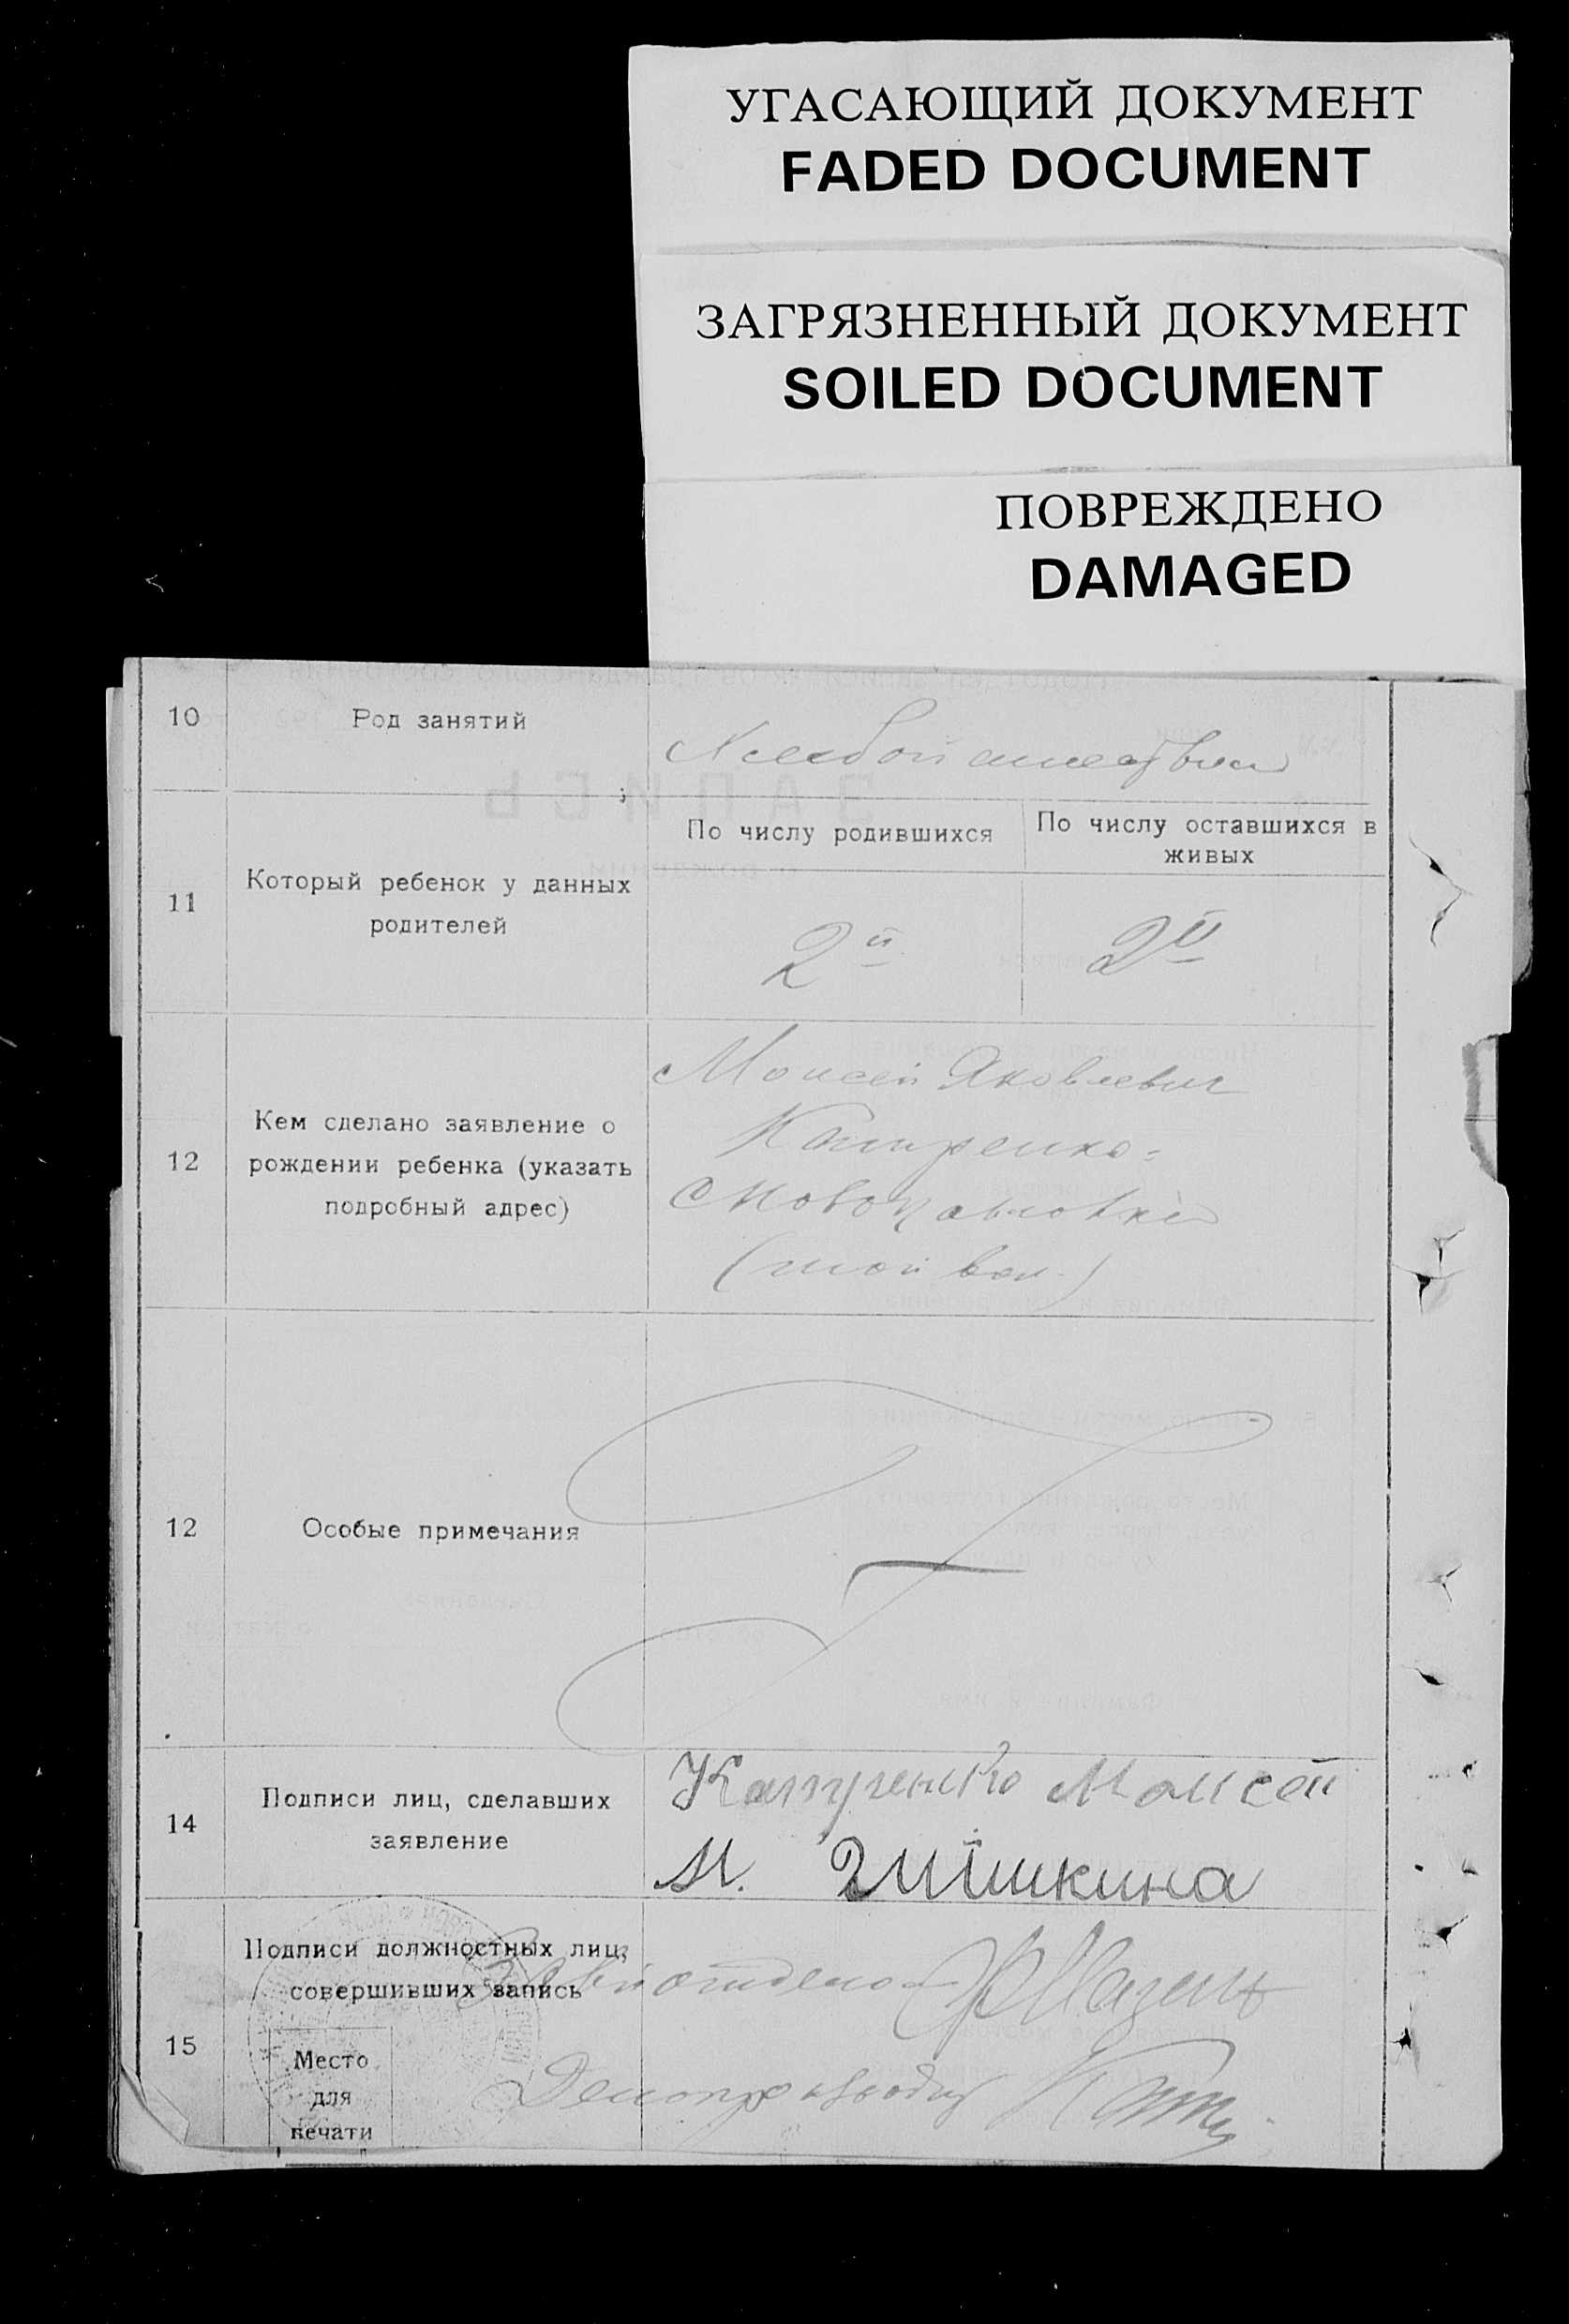 УГАСАЮЩИЙ ДОКУМЕНТ
FADED DOCUMENT
ЗАГРЯЗНЕННЫЙ ДОКУМЕНТ
SOILED DOCUMENT
ПОВРЕЖДЕНО
DAMAGED
10 Род занятий
Хлебопашество
11 Который ребенок у данных
родителей
По числу родившихся
По числу оставшихся в
живых
2й
2й
12 Кем сделано заявление о
рождении ребенка (указать
подробный адрес)
Моисей Яковлевич
Катренко
Новопавловка
(той вол.)
12 Особые примечания
14 Подписи лиц, сделавших
заявление
Моисей
М.
15 Подписи должностных лиц,
совершивших запись
Место
для
печати
Делопроизвод